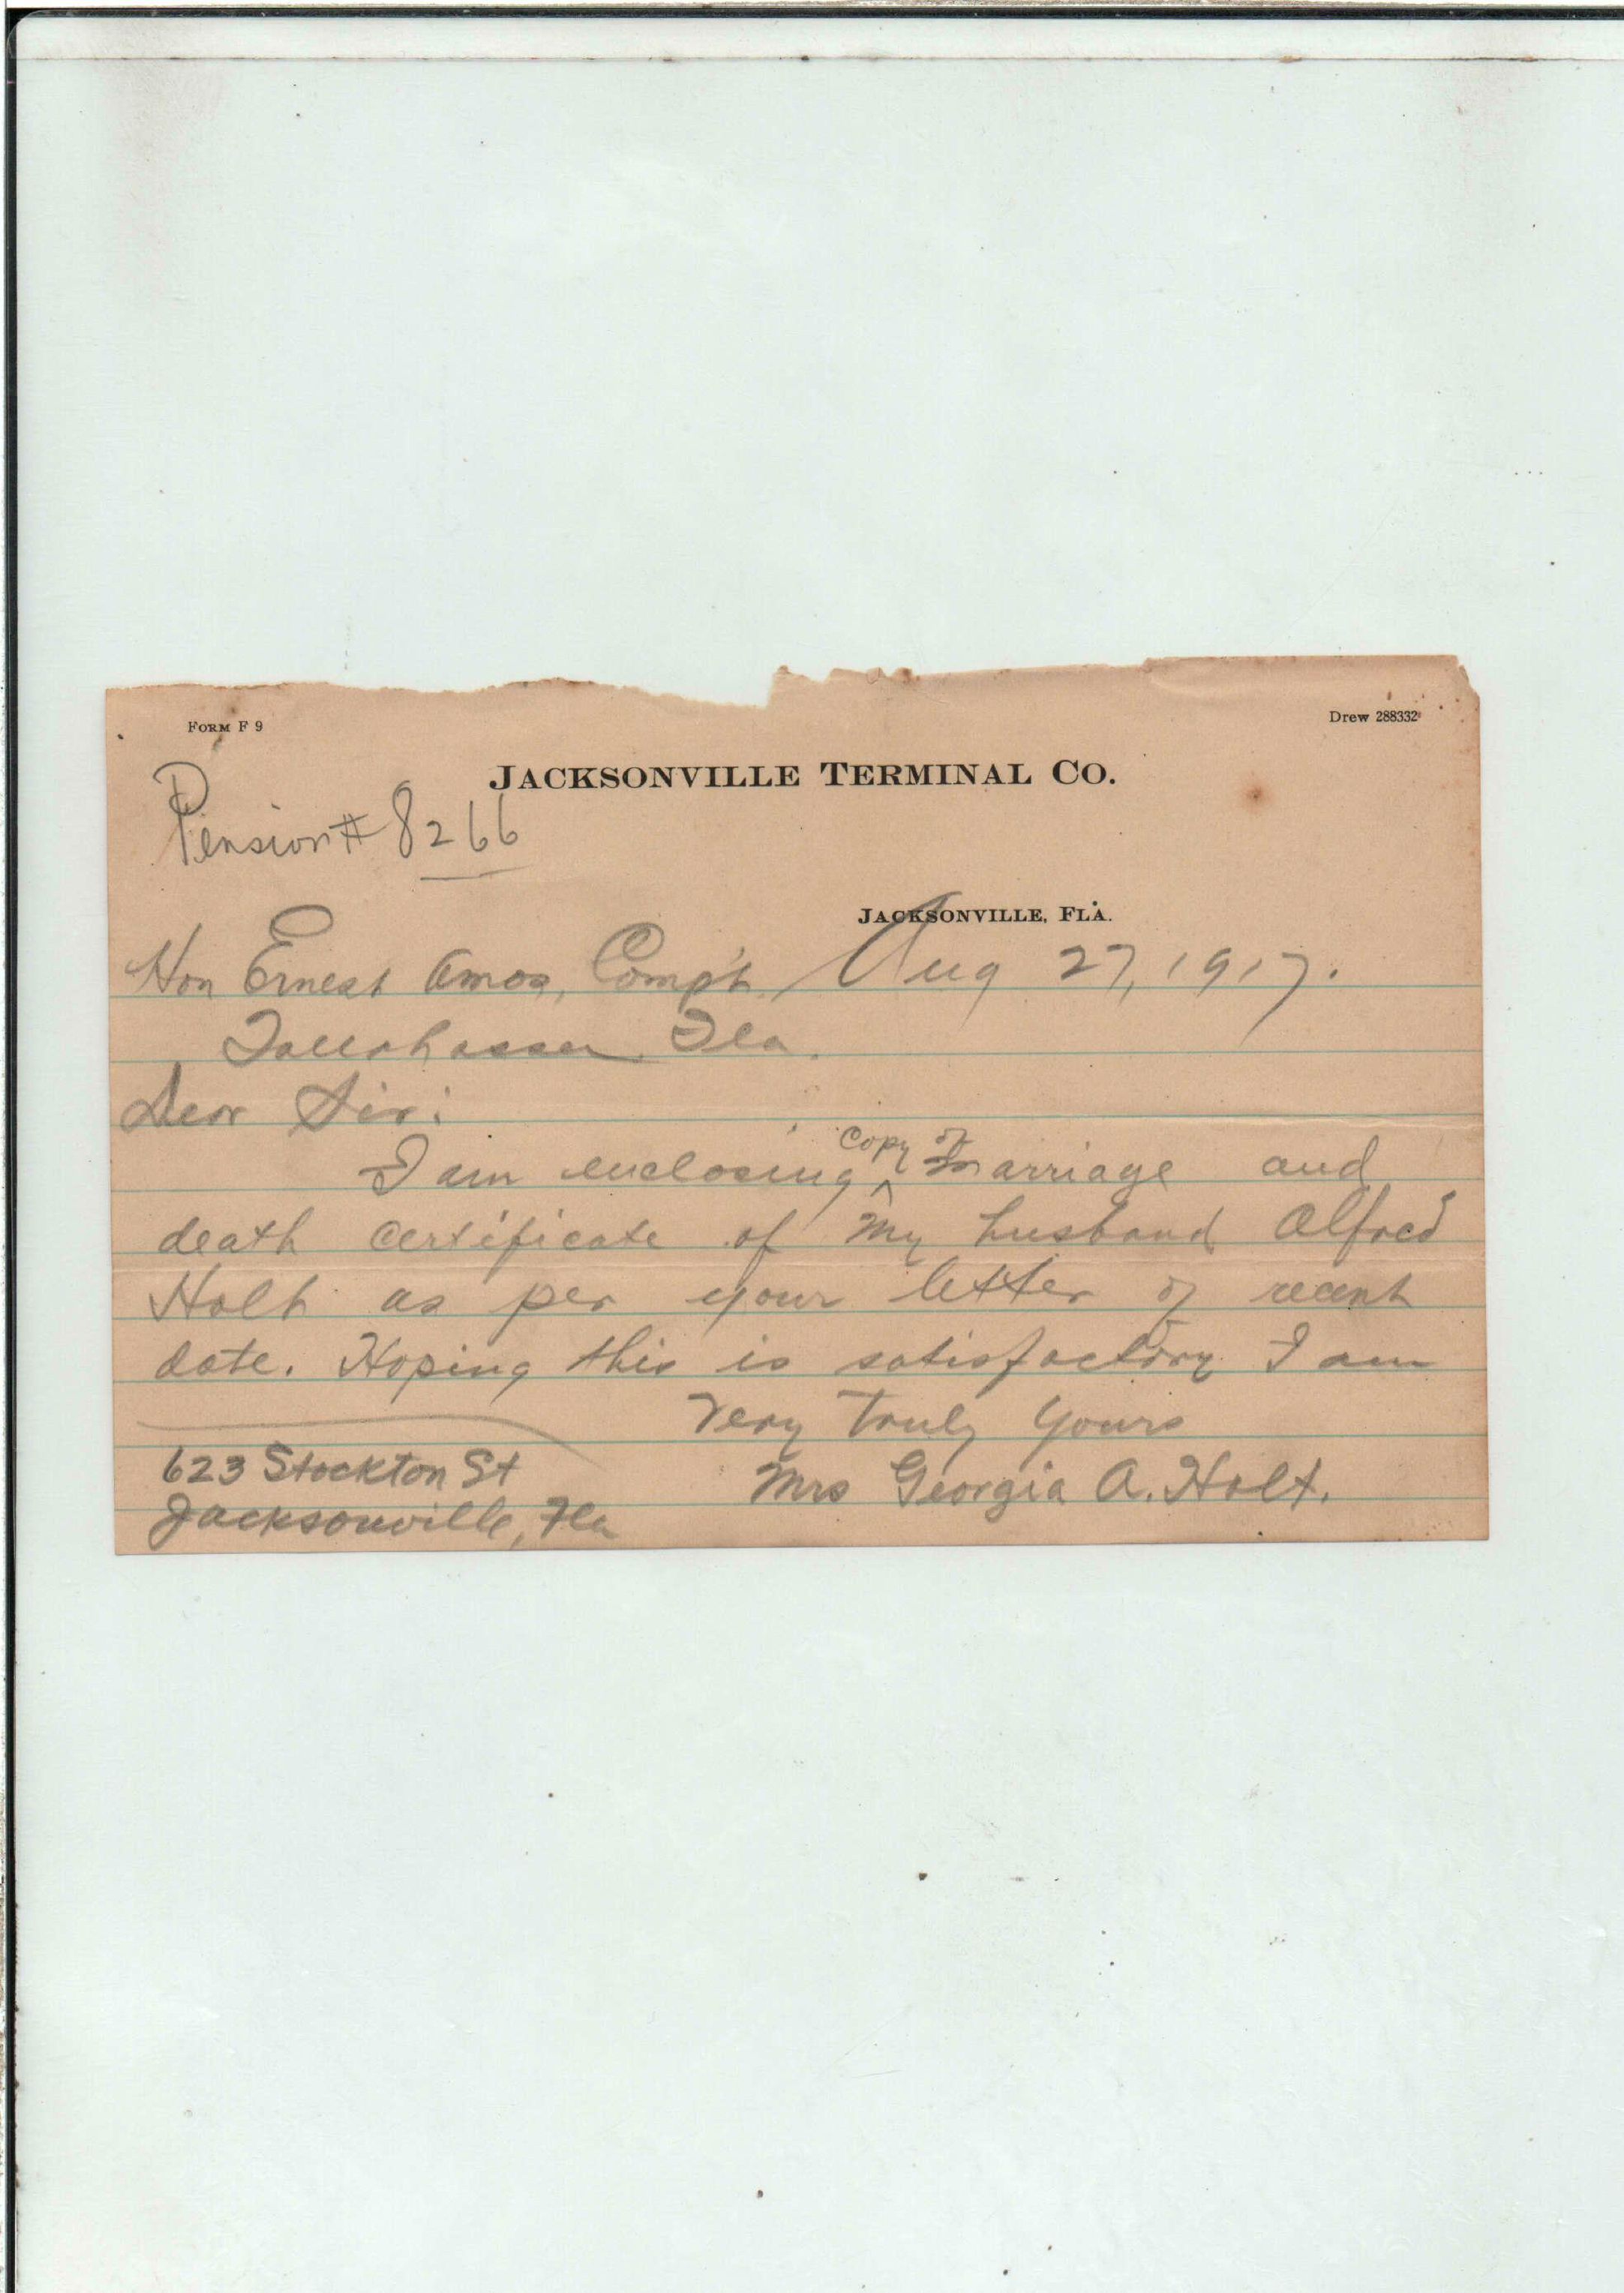 FORM F 9
Drew 288332
JACKSONVILLE TERMINAL CO.
Pension # 8266
JACKSONVILLE, FLA.
Hon Ernest Amos, Comp't, Aug 27, 1917.
Tallahassee Fla.
Dear Sir:
I am enclosing ^copy of marriage and
death certificate of my husband Alfred
Holt as per your letter of recent
date. Hoping this is satisfactory I am
Very Truly Yours
623 Stockton St
Mrs Georgia A. Holt.
Jacksonville, Fla